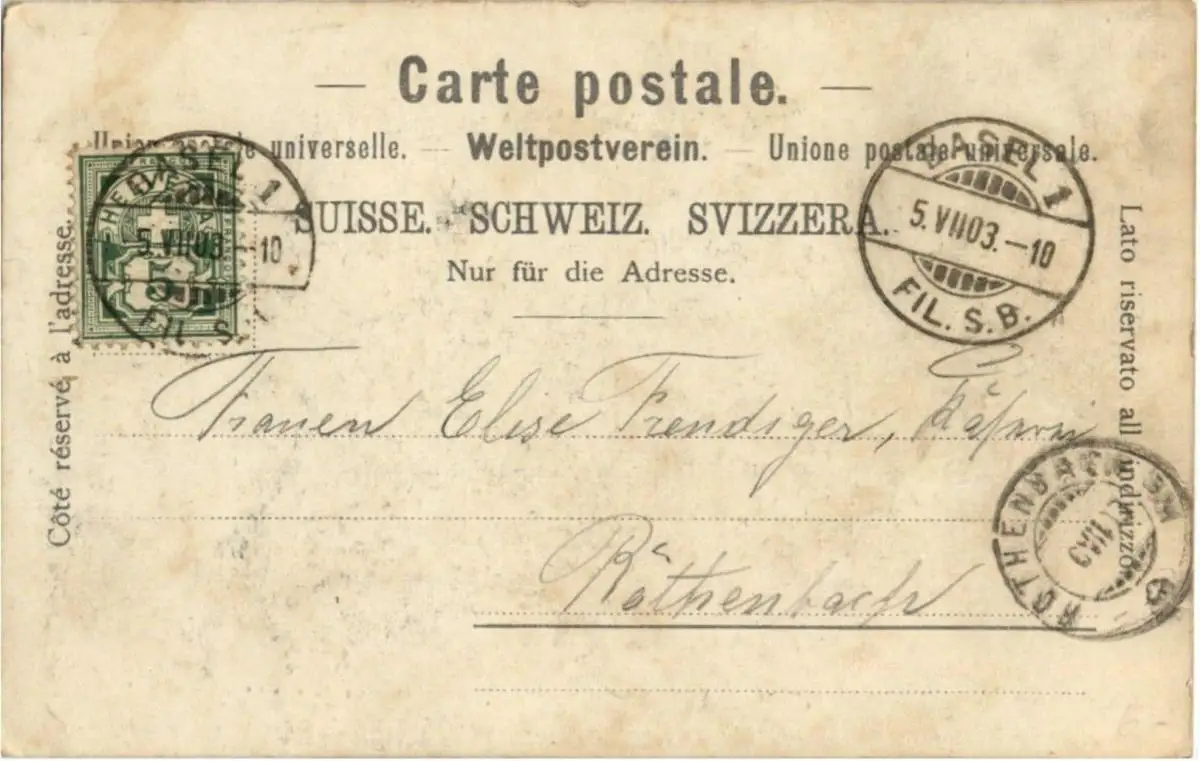 Carte postale.
Union postale universelle. — Weltpostverein. — Unione postale universale.
SUISSE. SCHWEIZ. SVIZZERA.
Nur für die Adresse.
Côté réservé à l'adresse.
Lato riservato all indirizzo
HELVETIA
5
BASEL 1
5.VII.03.-10
FIL. S.
BASEL 1
5.VII.03.-10
FIL. S. B.
Frauen Elise Trendiger, Käserei
Röthenbach
RÖTHENBACH